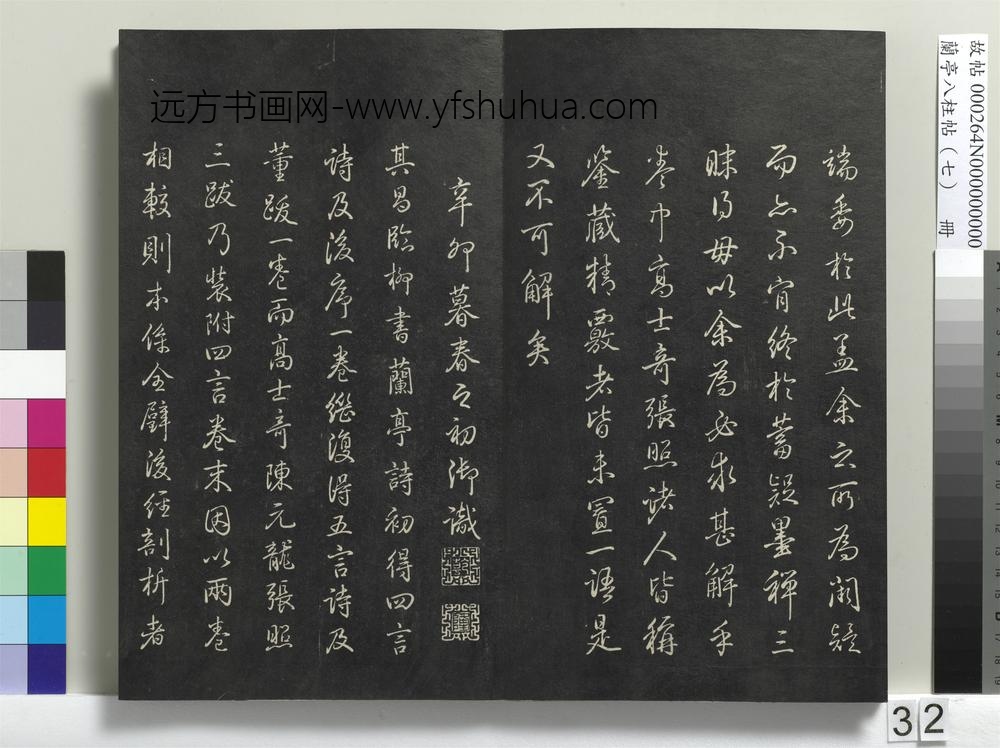 端委於此孟余之所為闕疑
而亦不肯終於蓄疑墨禪三
昧得毋以余為必求甚解乎
卷中高士奇張照諸人皆稱
鑒藏精覈者皆未置一語是
又不可解矣
辛卯暮春之初御識
其昌臨柳書蘭亭詩初得四言
詩及後序一卷繼復得五言詩及
董跋一卷而高士奇陳元龍張照
三跋乃裝附四言卷末因以兩卷
相較則本係全璧後經剖析者
远方书画网-www.yfshuhua.com
故帖 000264N000000000
蘭亭八柱帖(七) 冊
32